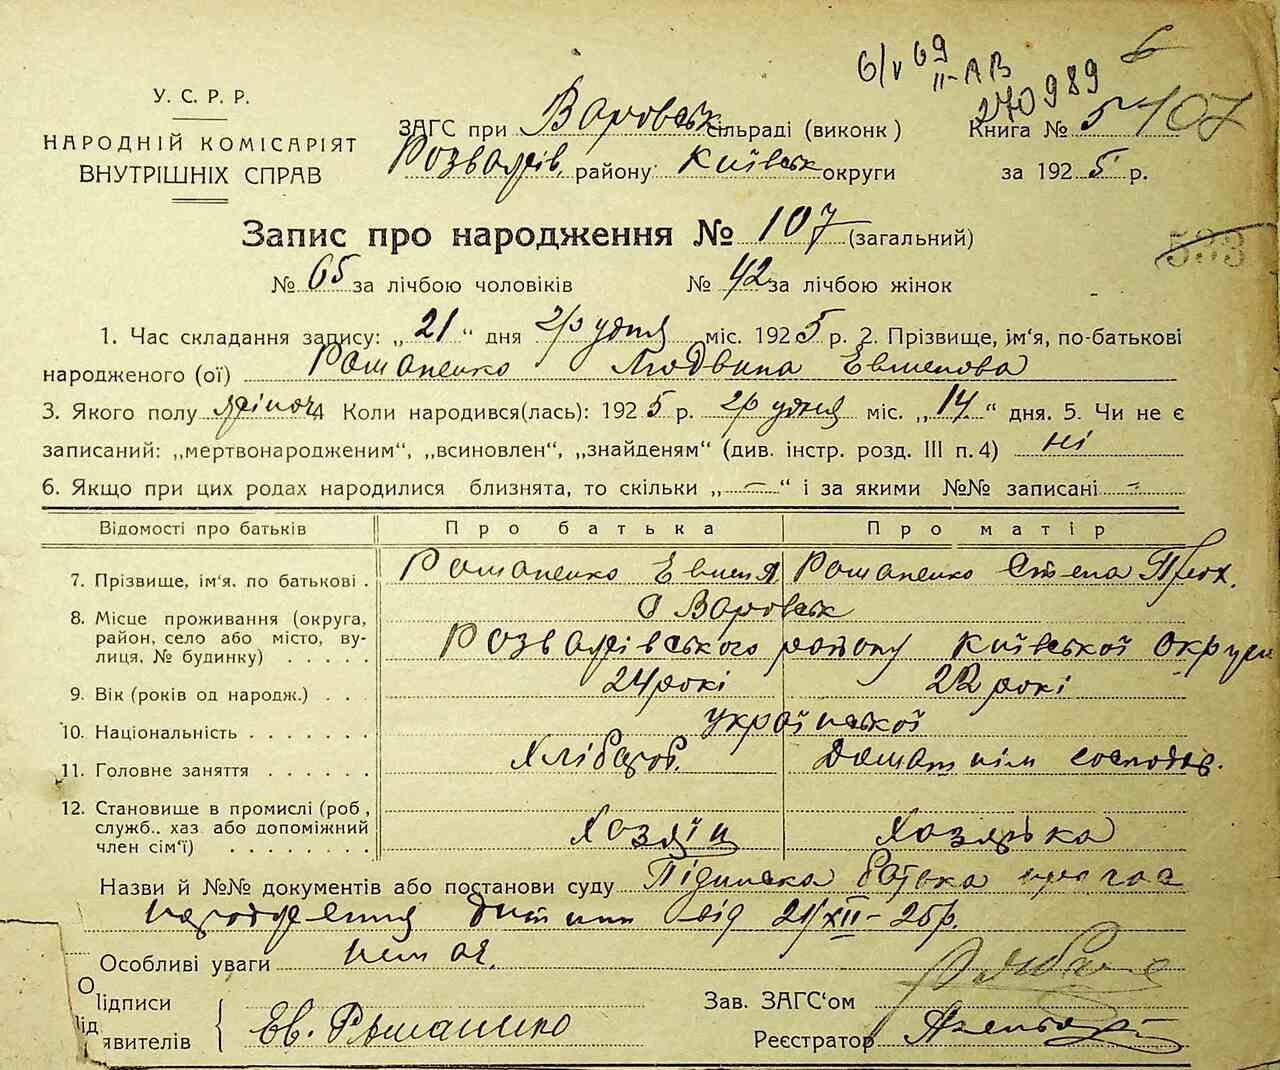 6/V 69
II-АВ
270989
У. С. Р. Р.
НАРОДНІЙ КОМІСАРІЯТ
ВНУТРІШНІХ СПРАВ
ЗАГС при Воровськ сільраді (виконк)
Розважів. району Київськ округи
Книга № 5 107
за 1925 р.
Запис про народження № 107 (загальний)
583
№ 65 за лічбою чоловіків № 42 за лічбою жінок
1. Час складання запису: „21“ дня грудня міс. 1925 р. 2. Прізвище, ім'я, по-батькові
народженого (ої) Романенко Людвина Евменова
3. Якого полу жіноч 4 Коли народився(лась): 1925 р. грудня міс. „14“ дня. 5. Чи не є
записаний: „мертвонародженим“, „всиновлен“, „знайденям“ (див. інстр. розд. III п. 4) ні
6. Якщо при цих родах народилися близнята, то скільки „—“ і за якими №№ записані -
Відомості про батьків Про батька Про матір
7. Прізвище, ім'я, по батькові. Романенко Евмен Романенко Степа Прох.
8. Місце проживання (округа, район, село або місто, вулиця, № будинку) с Воровськ
Розважівського району Київської округи
9. Вік (років од народж.) 24 рокі 22 рокі
10. Національність української
11. Головне заняття Хлібороб. Домашнім господар.
12. Становище в промислі (роб., служб.. хаз або допоміжний член сім'ї) Хозяїн Хозяйка
Назви й №№ документів або постанови суду Підписка батька про час
народження дитини від 21/XII-25р.
Особливі уваги немає.
Підписи
заявителів Ев. Романенко
Зав. ЗАГС'ом
Реєстратор